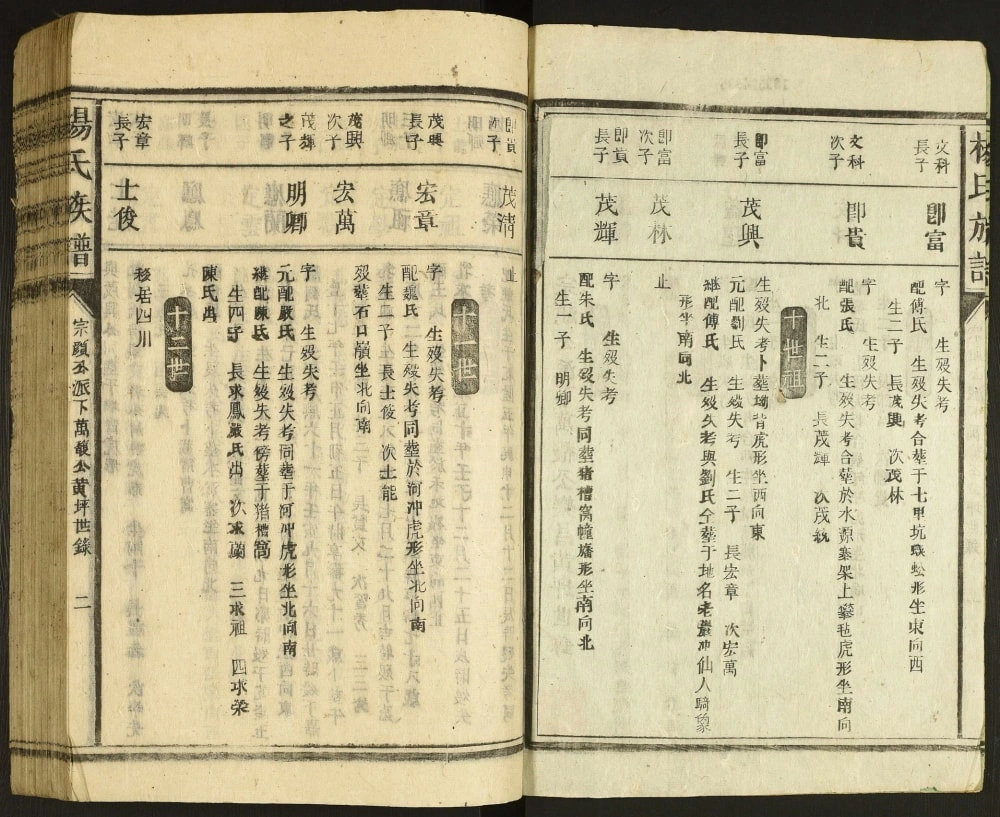 楊氏族譜
文科長子
即富
字 生殁失考
配傅氏 生殁失考合塟于七甲坑蜈蚣形坐東向西
生二子 長茂興 次茂林
文科次子
即貴
字 生殁失考
配張氏 生殁失考合塟於水源寨架上攀毡虎形坐南向
北 生二子 長茂輝 次茂
十世祖
即富長子
茂興
生殁失考卜塟坳背虎形坐西向東
元配劉氏 生殁失考 生二子 長宏章 次宏萬
継配傅氏 生殁失考與劉氏仝塟于地名老巖冲仙人騎象
形坐南向北
即富次子
茂林
止
即貴長子
茂輝
字 生殁失考
配朱氏 生殁失考同塟猪槽窩幢旛形坐南向北
生一子 明卿
即貴次子
茂清
止
十一世
茂興長子
宏章
字 生殁失考
配魏氏 生殁失考同塟於河冲虎形坐北向南
生二子 長士俊 次士能
茂興次子
宏萬
殁塟石口嶺坐北向南
茂輝之子
明卿
字 生殁失考
元配嚴氏 生殁失考同塟于河冲虎形坐北向南
継配陳氏 生殁失考傍塟于猪槽窩
生四子 長求鳳嚴氏出 次求蘭 三求祖 四求荣
陳氏出
十二世
宏章長子
士俊
移居四川
楊氏族譜
宗顕公派下萬公黄坪世錄
二